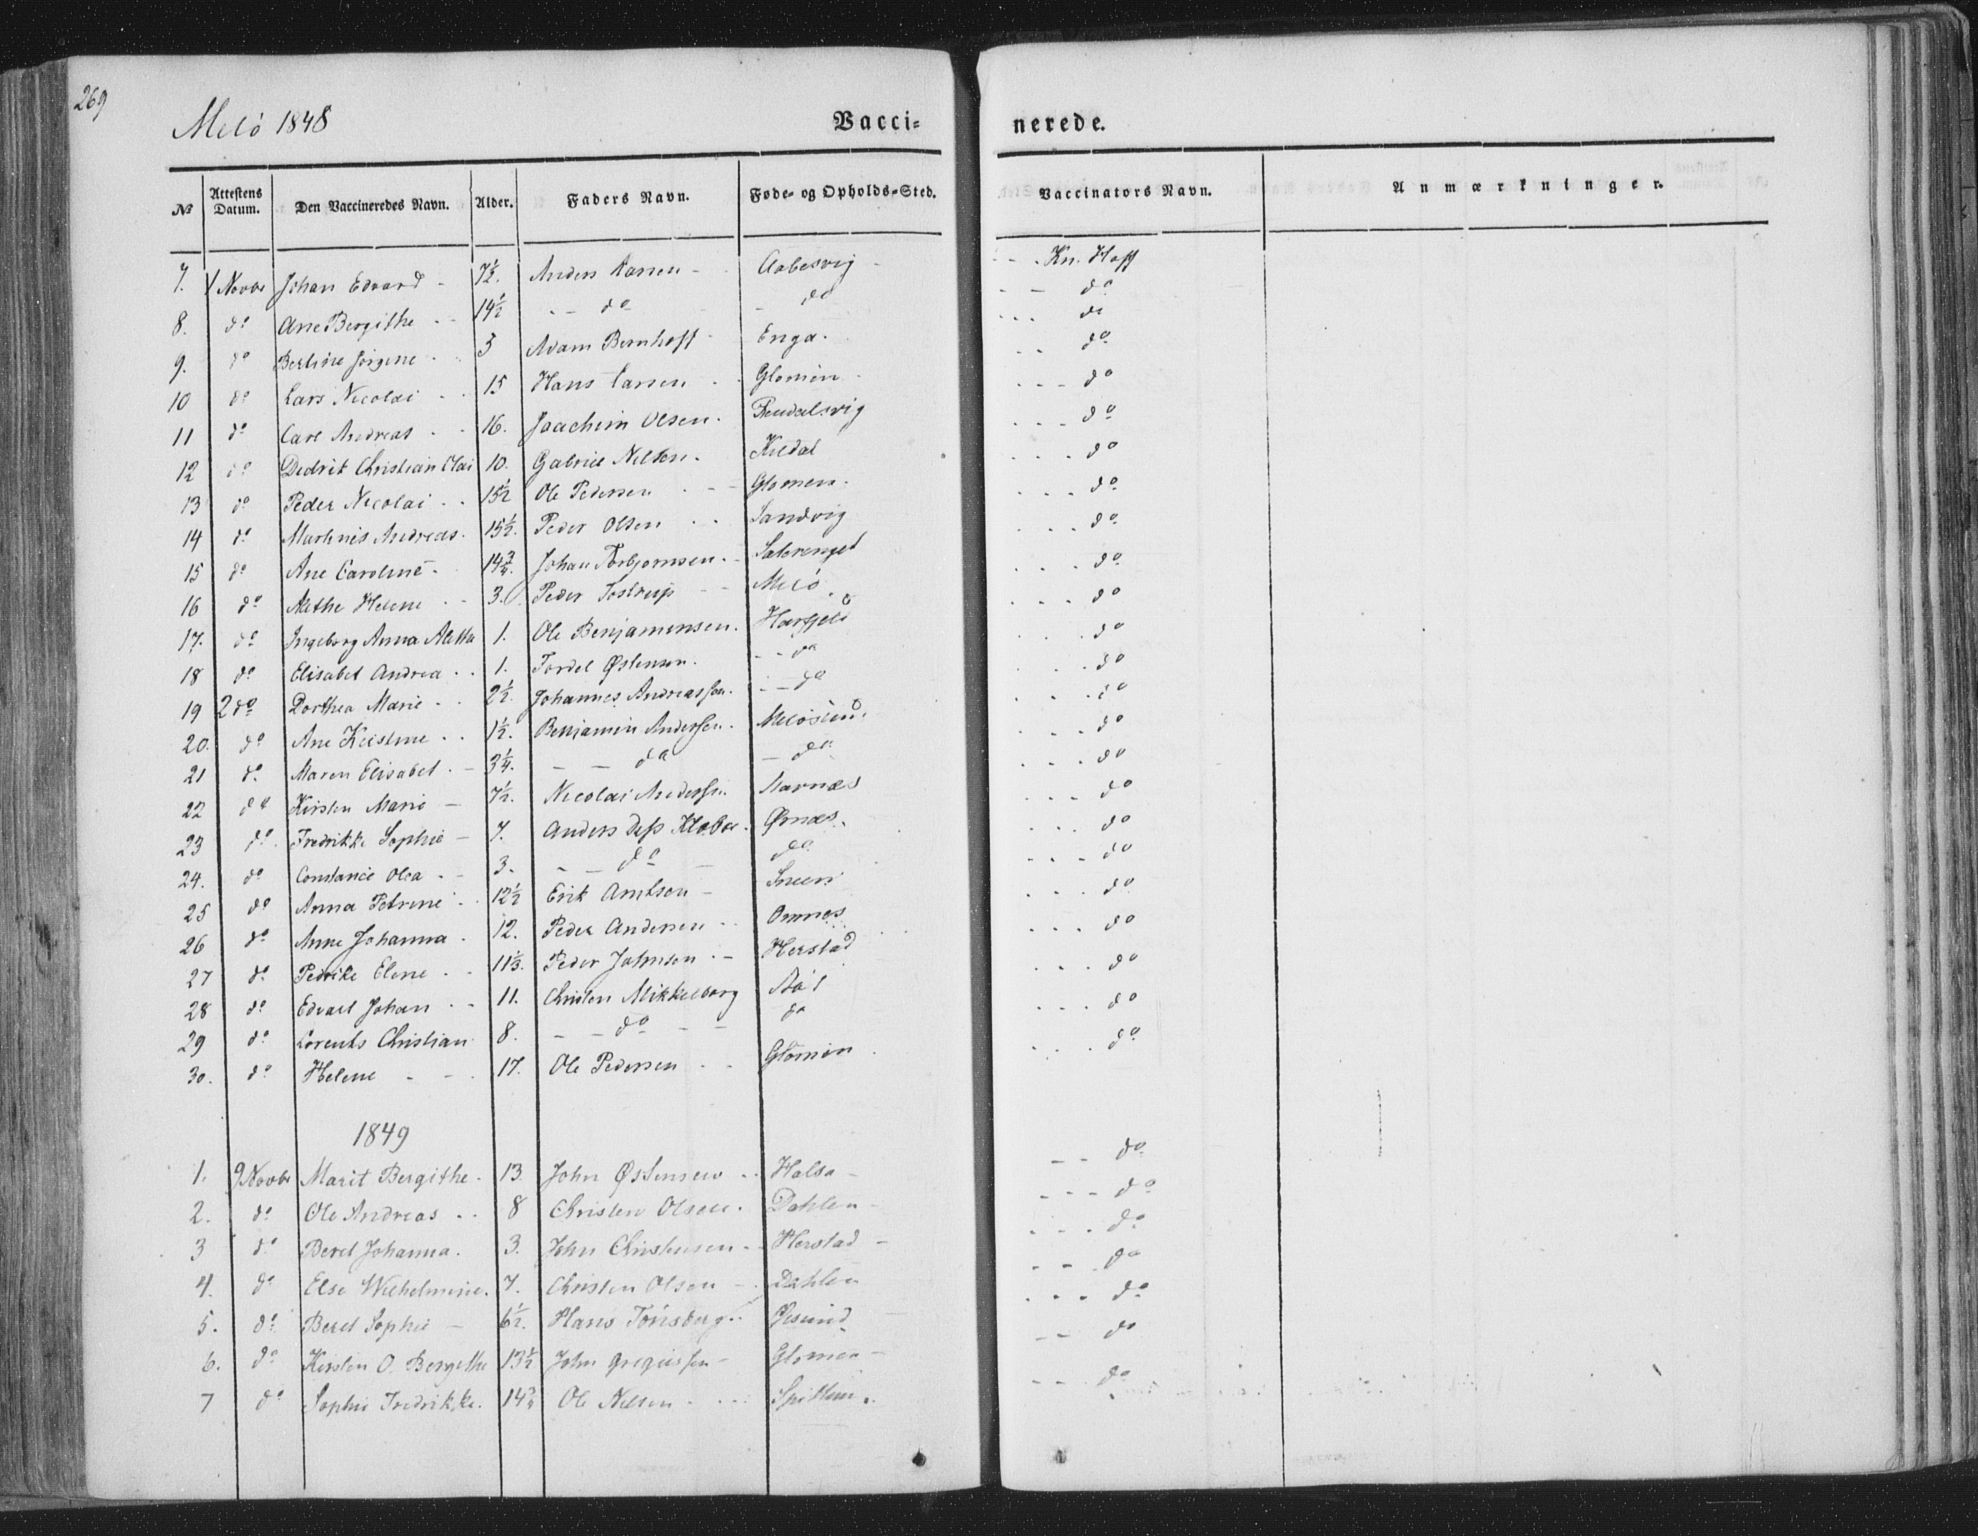 269
Melö 1848
Vacci-
nerede.
No Attestens Datum. Den Vaccineredes Navn. Alder. Faders Navn. Føde- og Opholds-Sted. Vaccinators Navn. Anmærkninger.
7. 1 Novbr Johan Edvard - 7½. Anders Larsen - Aabesvig - - - Kn. Hoff
8. do Ane Bergithe - - 14½ - - do - do - - do
9. do Berline Jörgine - 3 Adam Bernhoff Enga. - - - do
10 do Lars Nicolai - - 15 Hans Larsen - - Glomen - - - do
11 do Carl Andreas - - 16. Joachim Olsen. Reudalsvig - - - do
12 do Dedrik Christian Olai 10. Gabriel Nilsen. Kildal - - - do
13 do Peder Nicolai - - 15½ Ole Pedersen - - Glomen. - - - do
14 do Martinis Andreas. 15½. Peder Olsen - - Sandvig - - - do
15 do Ane Caroline - 14¾. Johan Torbjornsen. - - - - do
16 do Alethe Helene - - 3. Peder Tostrup - - Melö. - - - do
17. do Ingeborg Anna Aletha 1. Ole Benjaminsen. - - - do
18 do Elisabet Andrea - - 1. Tordel Østensen. - - do - - - do
19 2 do Dorthea Marie - - 2½. Johannes Andreassen. - - do - - - do
20. do Ane Kristine - - 1½. Benjamin Anderssen. - - - do
21 do Maren Elisabet. - 3¼. - - do - do - - - do
22 do Kirsten Marie - 7½. Nicolai Anderssn. - - - do
23 do. Fredrikke Sophie - 7. Anders Klæboe. Ørnæs. - - - do
24. do Constance Olea - - 3. - - do - do - - - do
25 do Anna Petrine - - 12½ Erik Arntson - - - - do
26 do Anne Johanna - 12. Peder Andersen - - - - - do
27 do Pedrike Elene - - 11⅓. Peder Johnsen - - Herstad - - - do
28 do Edvart Johan - - 11. Christen Mikkelborg - - - do
29 do Lorents Christian 8. - - do - - do - - - do
30. do Helene - - - 17. Ole Pedersen - - Glomen - - - do
1849
1. 9 Novbr Marit Bergithe - 13. John Østensen - - Halsa - - - do
2. do Ole Andreas - - 8 Christen Olsen. Dahlen - - - - do
3 do Beret Johanna. 3. John Christensen - - Herstad - - - - do
4. do Else Wilhelmine. 7. Christen Olsen - - Dahlen - - - do
5. do Beret Sophie - 6½. Hans Tönsberg - - - - do
6. do Kirsten O. Bergithe 13½ John Gregiussen - Glomen - - - do
7 do Sophie Fredrikke. 14¾ Ole Nilsen - - - - Spilderen. - - - do